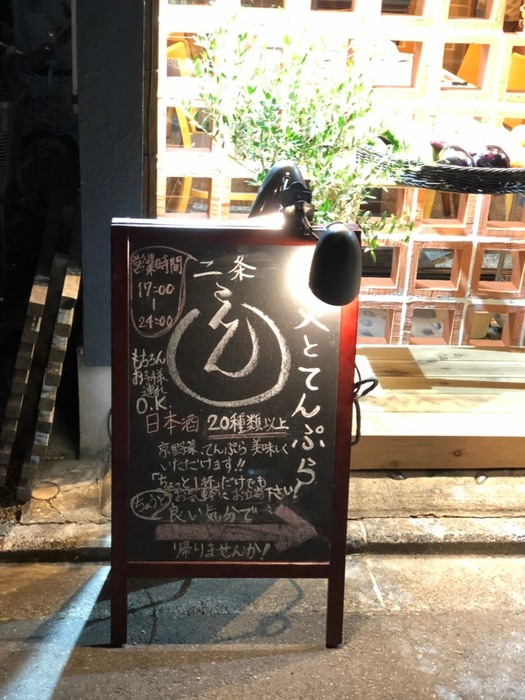 営業時間
17:00
|
24:00
二条
とてんぷら
もちろん
お子様
連れ
O.K.
日本酒 20種類以上
京野菜、てんぷら美味しく
いただけます!!
「ちょっと1杯」だけでも
お気軽にお立寄下さい!
ちょっと
良い気分で
帰りませんか!